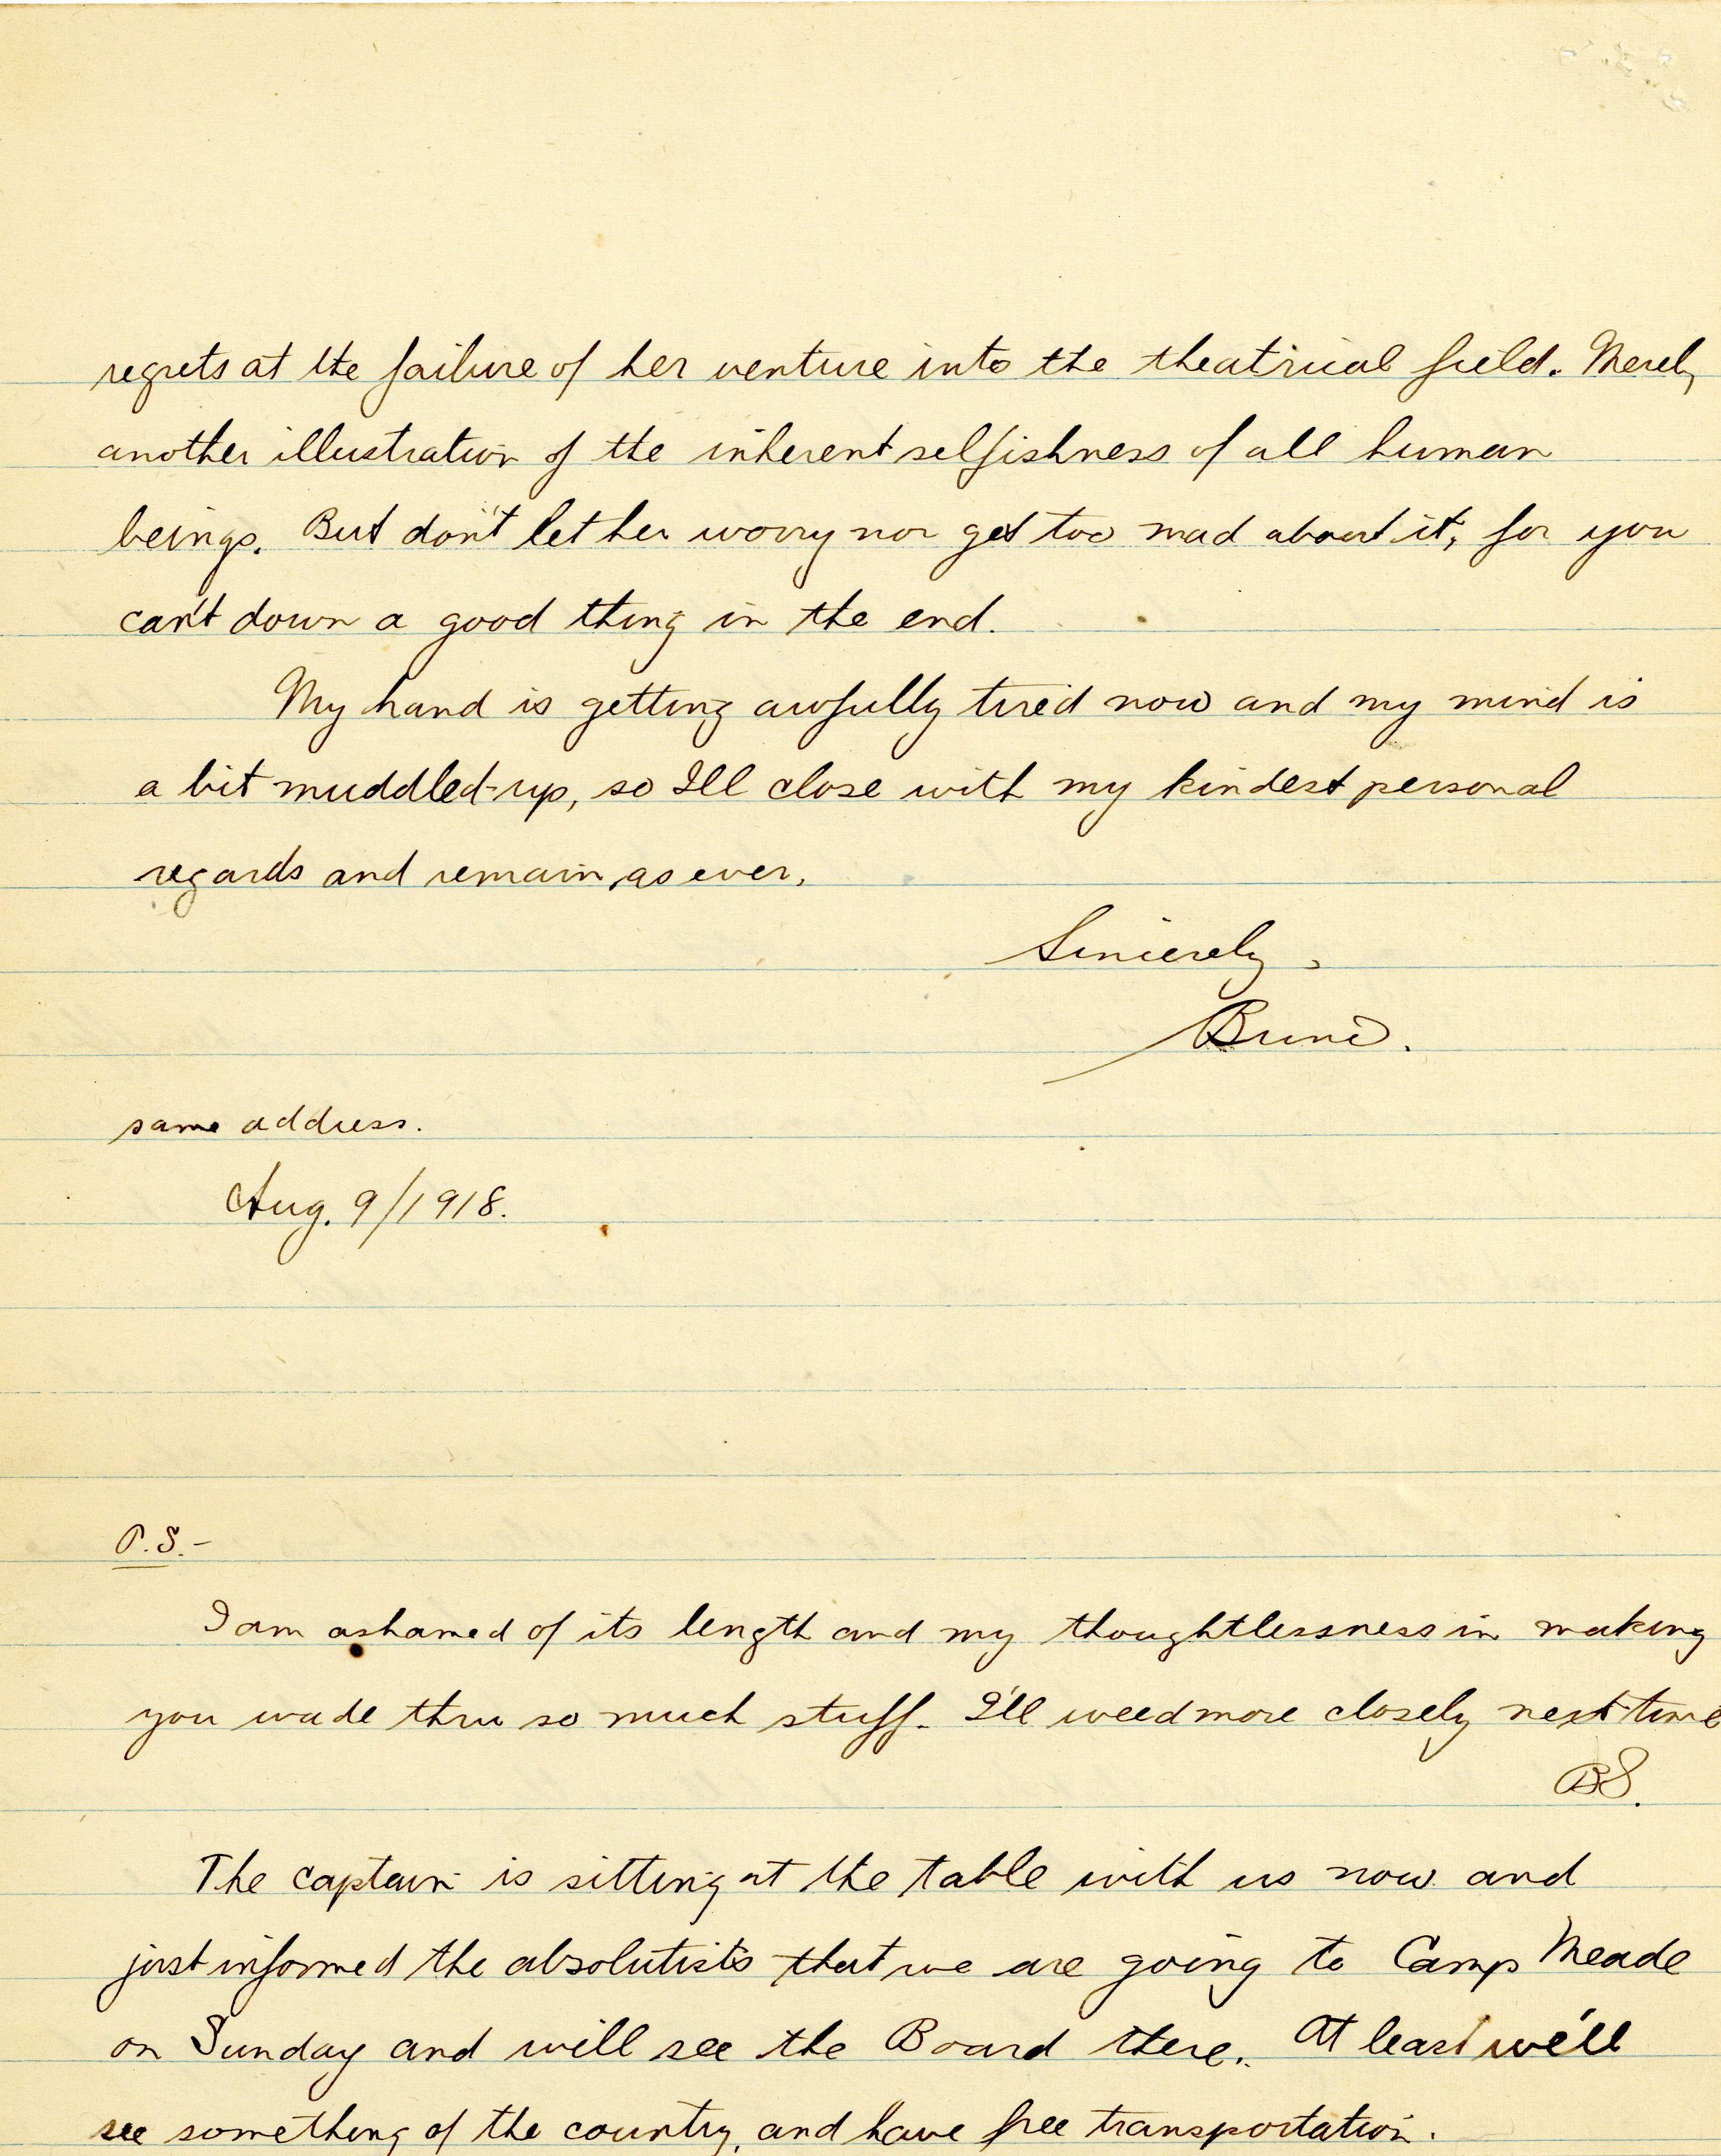 regrets at the failure of her venture into the theatrical field. Merely
another illustration of the inherent selfishness of all human
beings. But don't let her worry nor get too mad about it, for you
can't down a good thing in the end.
My hand is getting awfully tired now and my mind is
a bit muddled-up, so I'll close with my kindest personal
regards and remain, as ever,
Sincerely,
Bruno.
same address.
Aug. 9/1918.
P.S.-
I am ashamed of its length and my thoughtlessness in making
you wade thru so much stuff. I'll weed more closely next time
BS.
The captain is sitting at the table with us now and
just informed the absolutists that we are going to Camp Meade
on Sunday and will see the Board there. At least we'll
see something of the country, and have free transportation.